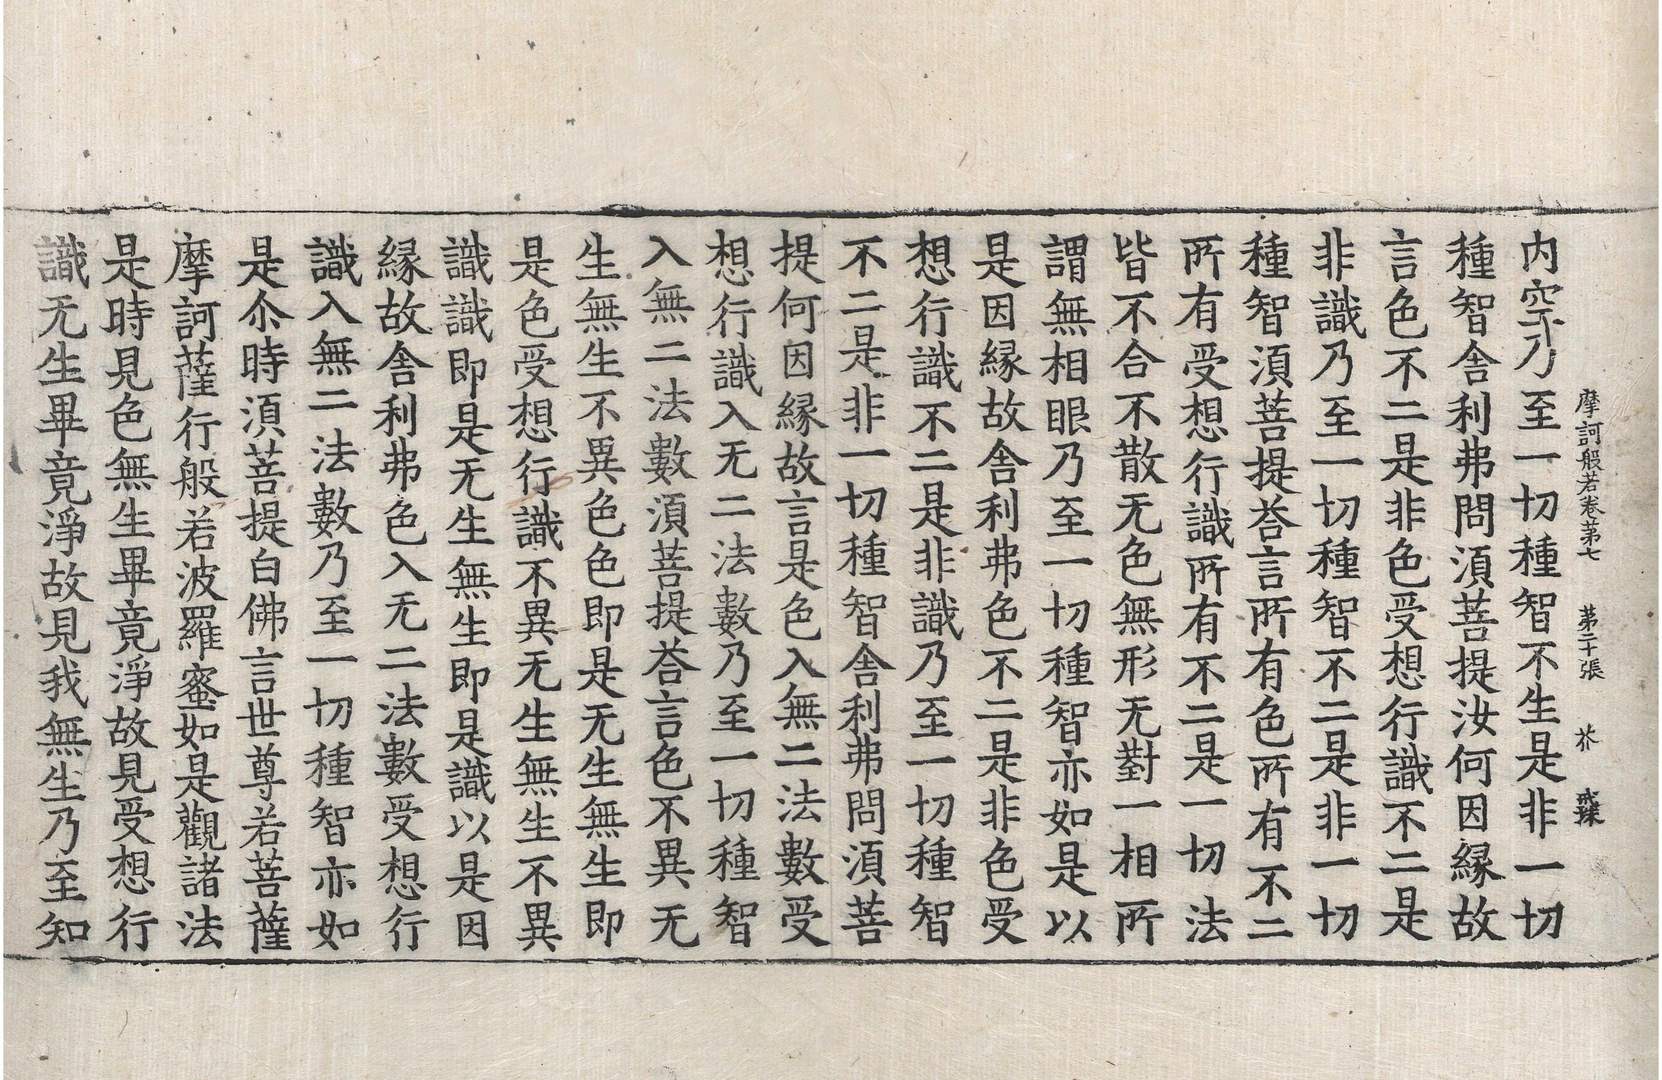 摩訶般若卷第七 第二十張 芥
内空乃至一切種智不生是非一切
種智舍利弗問須菩提汝何因縁故
言色不二是非色受想行識不二是
非識乃至一切種智不二是非一切
種智須菩提荅言所有色所有不二
所有受想行識所有不二是一切法
皆不合不散无色無形无對一相所
謂無相眼乃至一切種智亦如是以
是因縁故舍利弗色不二是非色受
想行識不二是非識乃至一切種智
不二是非一切種智舍利弗問須菩
提何因縁故言是色入無二法數受
想行識入无二法數乃至一切種智
入無二法數須菩提荅言色不異无
生無生不異色色即是无生無生即
是色受想行識不異无生無生不異
識識即是无生無生即是識以是因
縁故舍利弗色入无二法數受想行
識入無二法數乃至一切種智亦如
是尒時須菩提白佛言世尊若菩薩
摩訶薩行般若波羅蜜如是觀諸法
是時見色無生畢竟淨故見受想行
識无生畢竟淨故見我無生乃至知